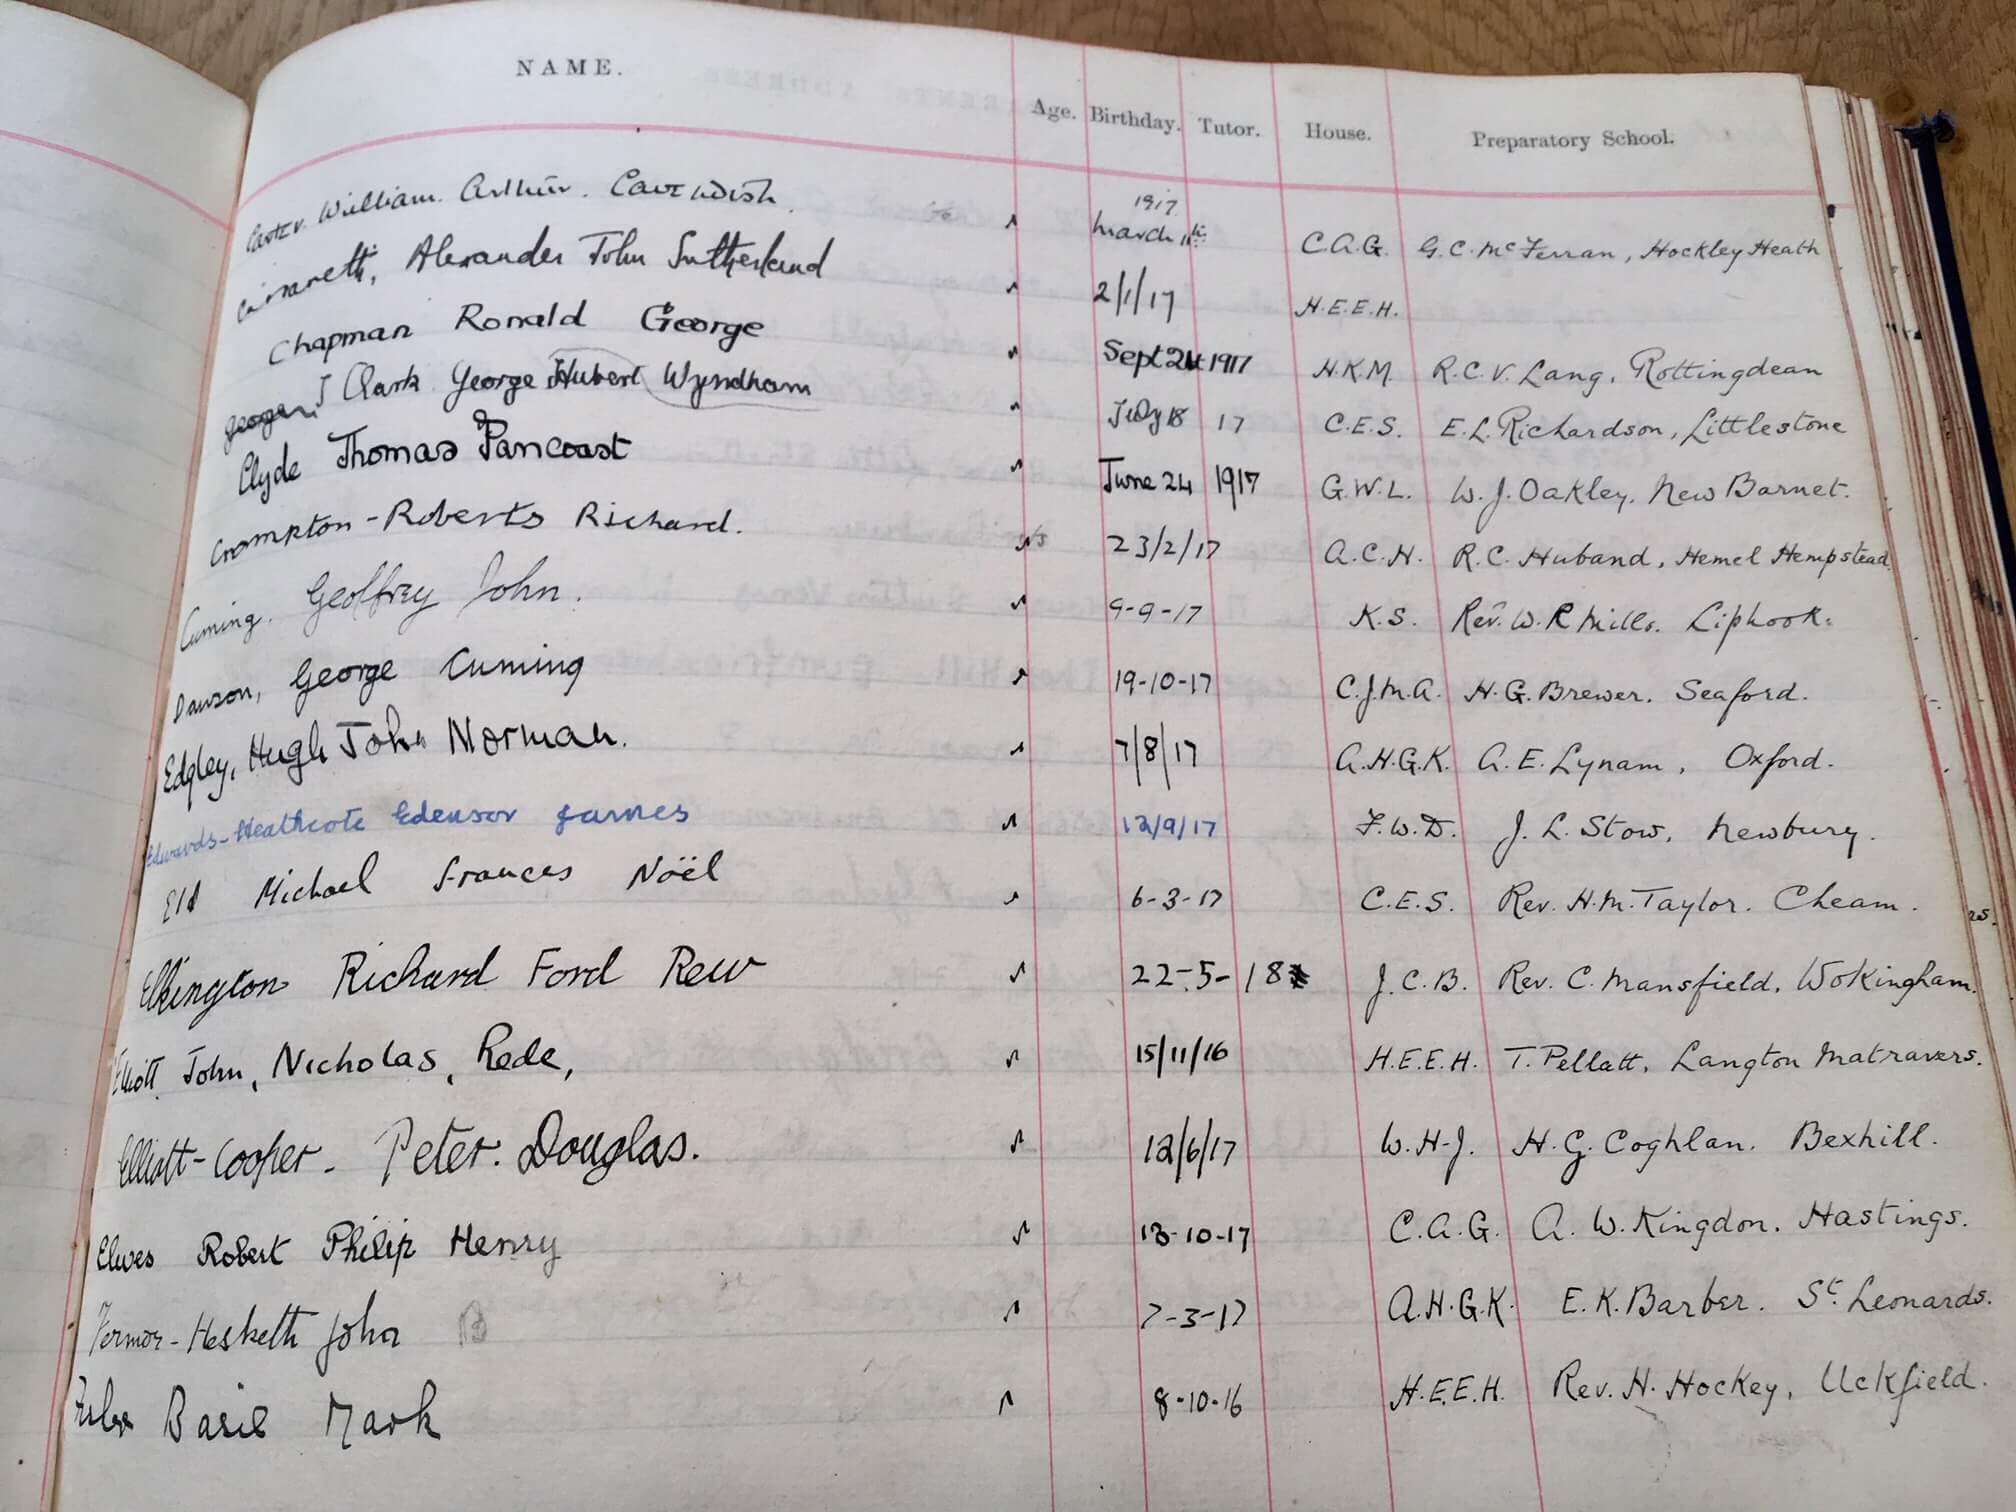 NAME. Age. Birthday. Tutor. House. Preparatory School.
Carter. William. Arthur. Cavendish. 1917 March 11th C.A.G. G.C. McFerran, Hockley Heath
Alexander John Sutherland 2/1/17 H.E.E.H.
Chapman Ronald George Sept 24 1917 H.K.M. R.C.V. Lang, Rottingdean
Clark George Hubert Wyndham July 18 17 C.E.S. E.L. Richardson, Littlestone
Clyde Thomas Pancoast June 24 1917 G.W.L. W.J. Oakley, New Barnet.
Crompton-Roberts Richard. 23/2/17 A.C.H. R.C. Huband, Hemel Hempstead
Cuming, Geoffrey John. 9-9-17 K.S. Rev. W.R Mills. Liphook.
Dawson, George Cuming 19-10-17 C.J.M.A. H.G. Brewer. Seaford.
Edgley, Hugh John Norman. 7/8/17 A.H.G.K. A.E. Lynam, Oxford.
Edwards-Heathcote Edensor James 12/9/17 F.W.D. J.L. Stow, Newbury.
Eld Michael Frances Noël 6-3-17 C.E.S. Rev. H.M. Taylor. Cheam.
Elkington Richard Ford Rew 22-5-18 J.C.B. Rev. C. Mansfield, Wokingham.
Elliott, John, Nicholas, Rede, 15/11/16 H.E.E.H. T. Pellatt, Langton Matravers.
Elliott-Cooper. Peter. Douglas. 12/6/17 W.H-J. H.G. Coghlan. Bexhill.
Elwes Robert Philip Henry 13-10-17 C.A.G. A.W. Kingdon. Hastings.
Fermor-Hesketh John B 7-3-17 A.H.G.K. E.K. Barber. St. Leonards.
Basil Mark 8-10-16 H.E.E.H. Rev. H. Hockey, Uckfield.